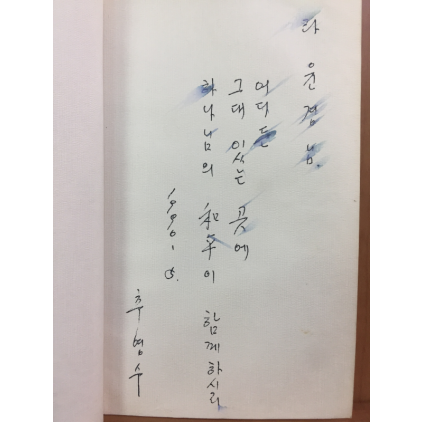 라 윤 점 님.
어디든
그대 있는 곳에
하나님의 和平이 함께하시리
1990. 5.
추영수